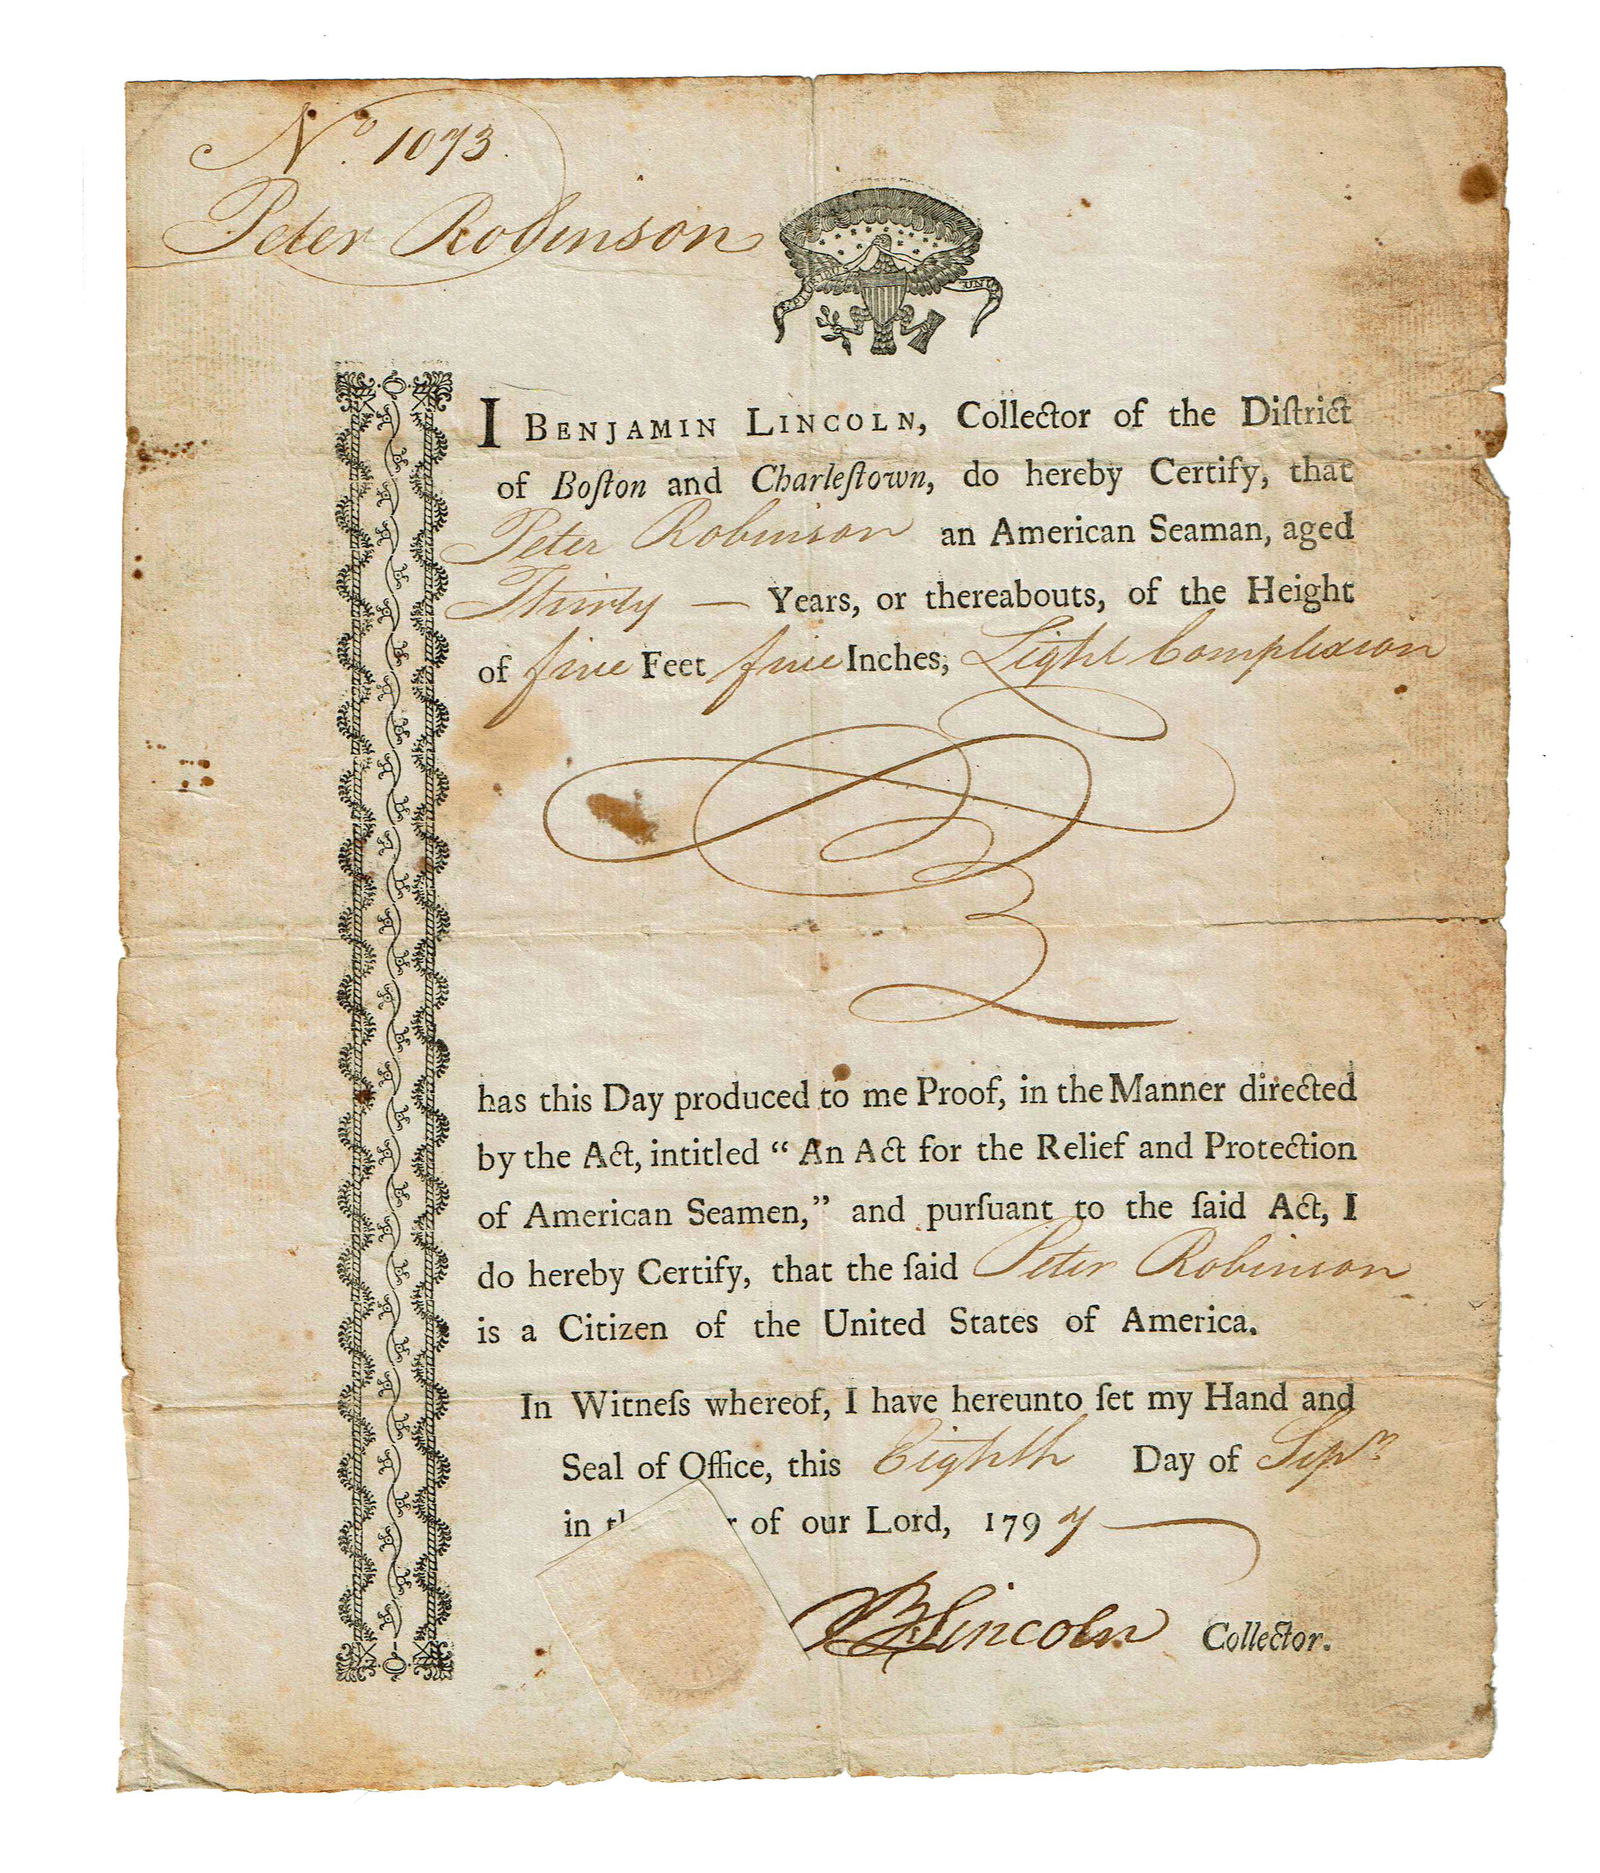 No. 1073.
Peter Robinson
E PLURIBUS UNUM
I BENJAMIN LINCOLN, Collector of the Diſtrict
of Boſton and Charleſtown, do hereby Certify, that
Peter Robinson an American Seaman, aged
Thirty — Years, or thereabouts, of the Height
of five Feet five Inches, Light Complexion
has this Day produced to me Proof, in the Manner directed
by the Act, intitled “An Act for the Relief and Protection
of American Seamen,” and purſuant to the ſaid Act, I
do hereby Certify, that the ſaid Peter Robinson
is a Citizen of the United States of America.
In Witneſs whereof, I have hereunto ſet my Hand and
Seal of Office, this Eighth Day of Sepr.
in of our Lord, 1797
B Lincoln Collector.